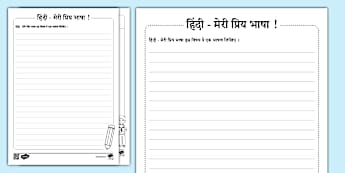 हिंदी - मेरी प्रिय भाषा !
हिंदी - मेरी प्रिय भाषा !
हिंदी - मेरी प्रिय भाषा इस विषय पे एक भाषण लिखिए ।